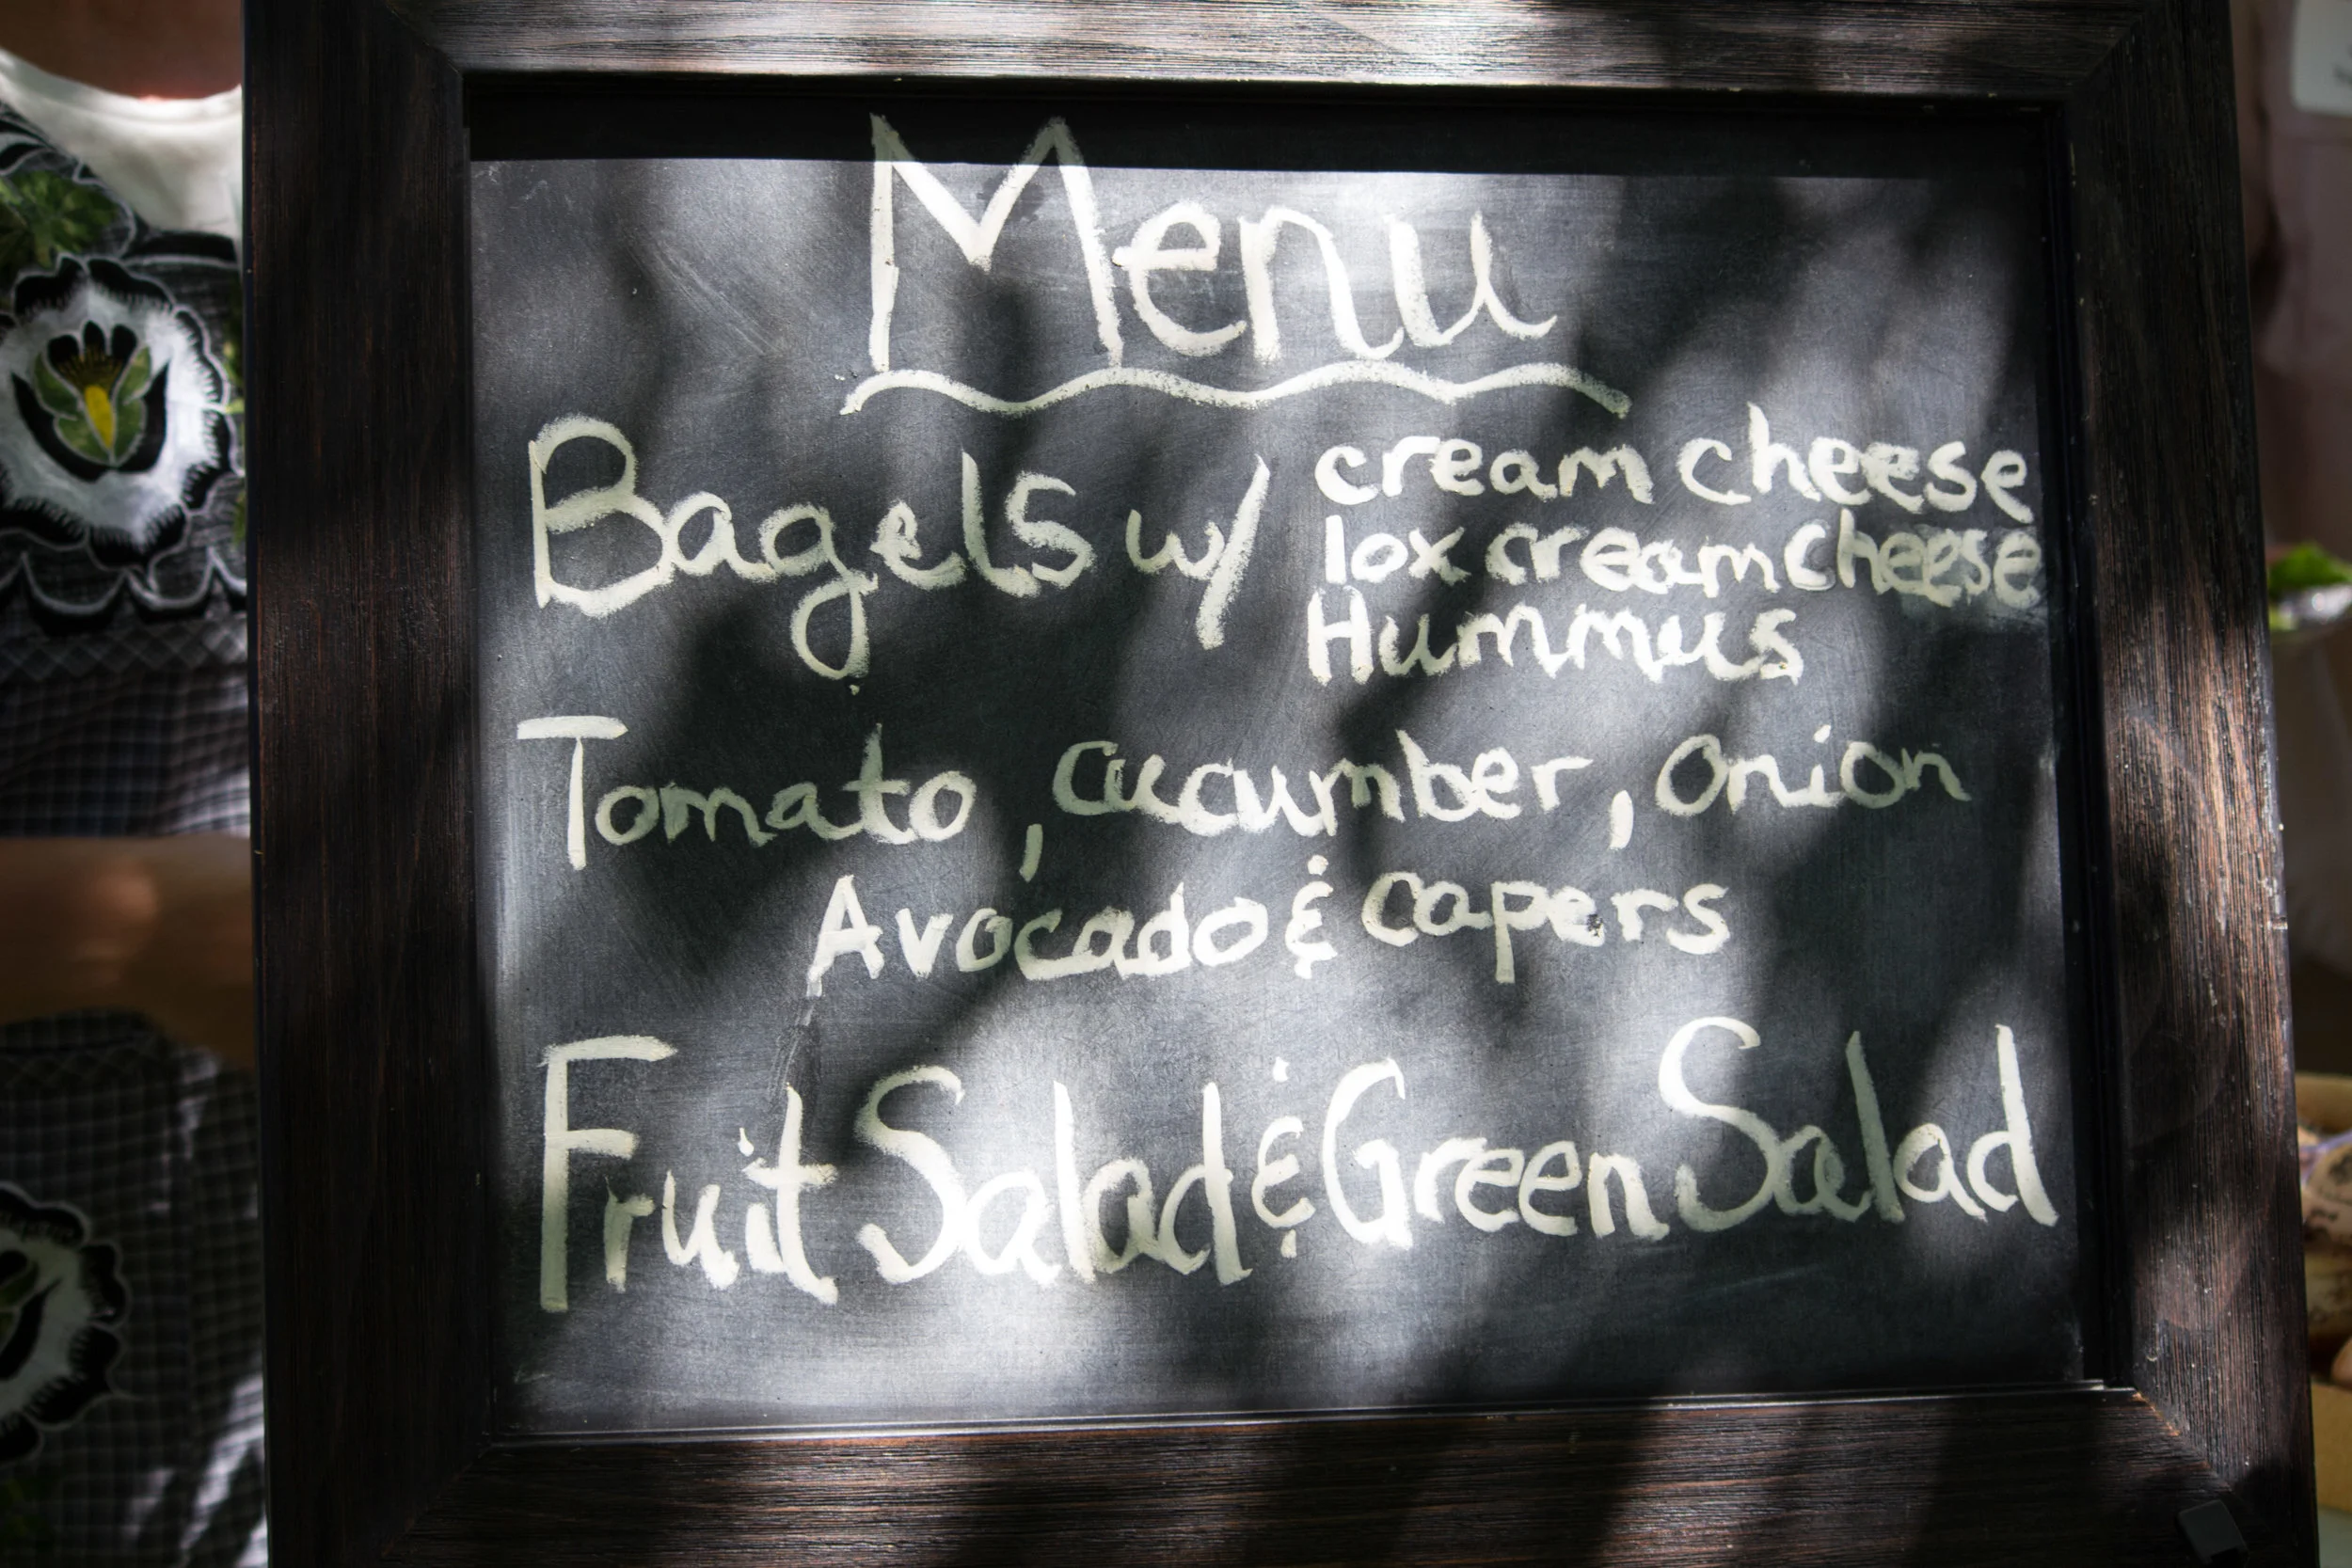 Menu
Bagels w/ cream cheese
lox cream cheese
Hummus
Tomato, cucumber, onion
Avocado & capers
Fruit Salad & Green Salad